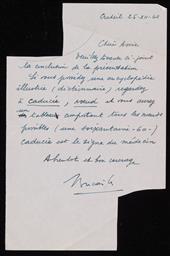 Creteil 25-XII-62
Cher Amie
Veuillez trouver ci-joint
la conclusion de la présentation
Si vous possédez une encyclopédie
illustrée (dictionnaire), regardez
à caducée, et vous aurez
un tableau comportant tous les
possibles (une soixantaine -60-)
caducée est le signe du médecin
A bientôt et bon courage